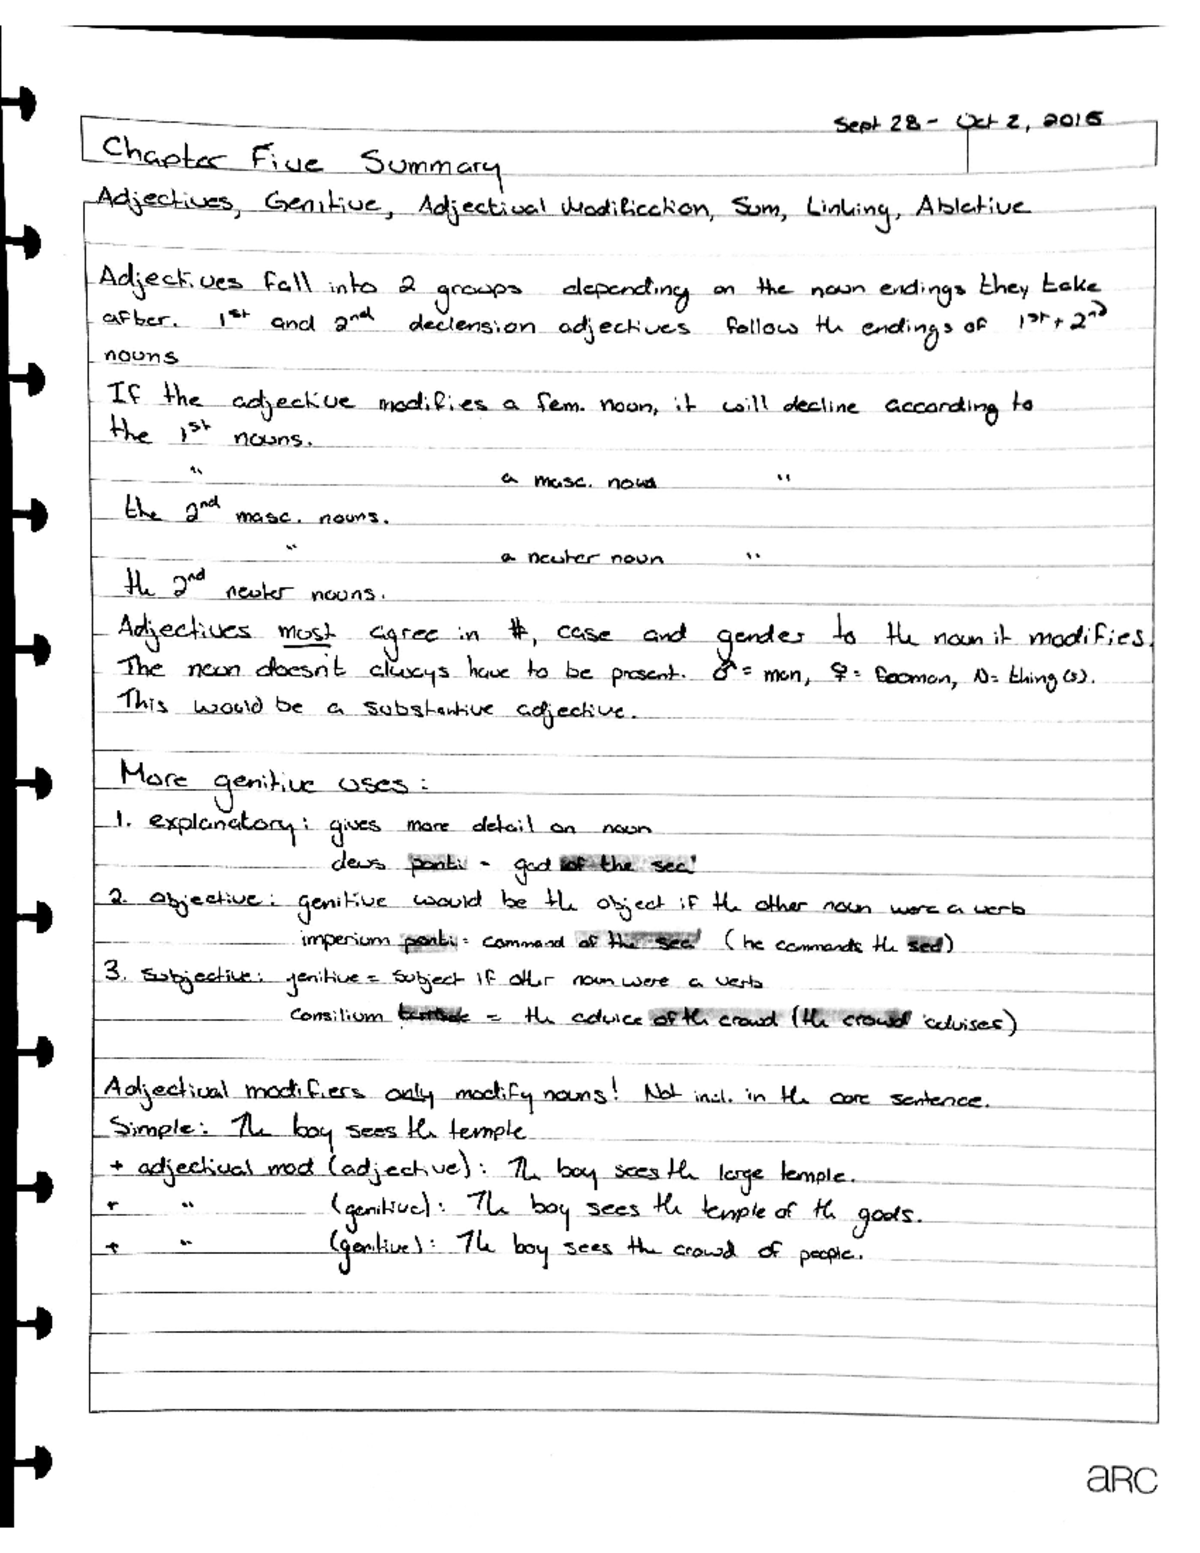 Sept 28 - Oct 2, 2015
Chapter Five Summary
Adjectives, Genitive, Adjectival Modification, Sum, Linking, Ablative
Adjectives fall into 2 groups depending on the noun endings they take
after. 1st and 2nd declension adjectives follow the endings of 1st + 2nd
nouns
If the adjective modifies a fem. noun, it will decline according to
the 1st nouns.
" a masc. noun "
the 2nd masc. nouns.
" a neuter noun "
the 2nd neuter nouns.
Adjectives must agree in #, case and gender to the noun it modifies.
The noun doesn't always have to be present. ♂ = man, ♀ = woman, N = thing(s).
This would be a substantive adjective.
More genitive uses:
1. explanatory: gives more detail on noun
deus ponti - god of the sea
2. objective: genitive would be the object if the other noun were a verb
imperium ponti = command of the sea (he commands the sea)
3. subjective: genitive = subject if other noun were a verb
consilium = the advice of the crowd (the crowd advises)
Adjectival modifiers only modify nouns! Not incl. in the core sentence.
Simple: The boy sees the temple
+ adjectival mod (adjective): The boy sees the large temple.
+ " (genitive): The boy sees the temple of the gods.
+ " (genitive): The boy sees the crowd of people.
aRC